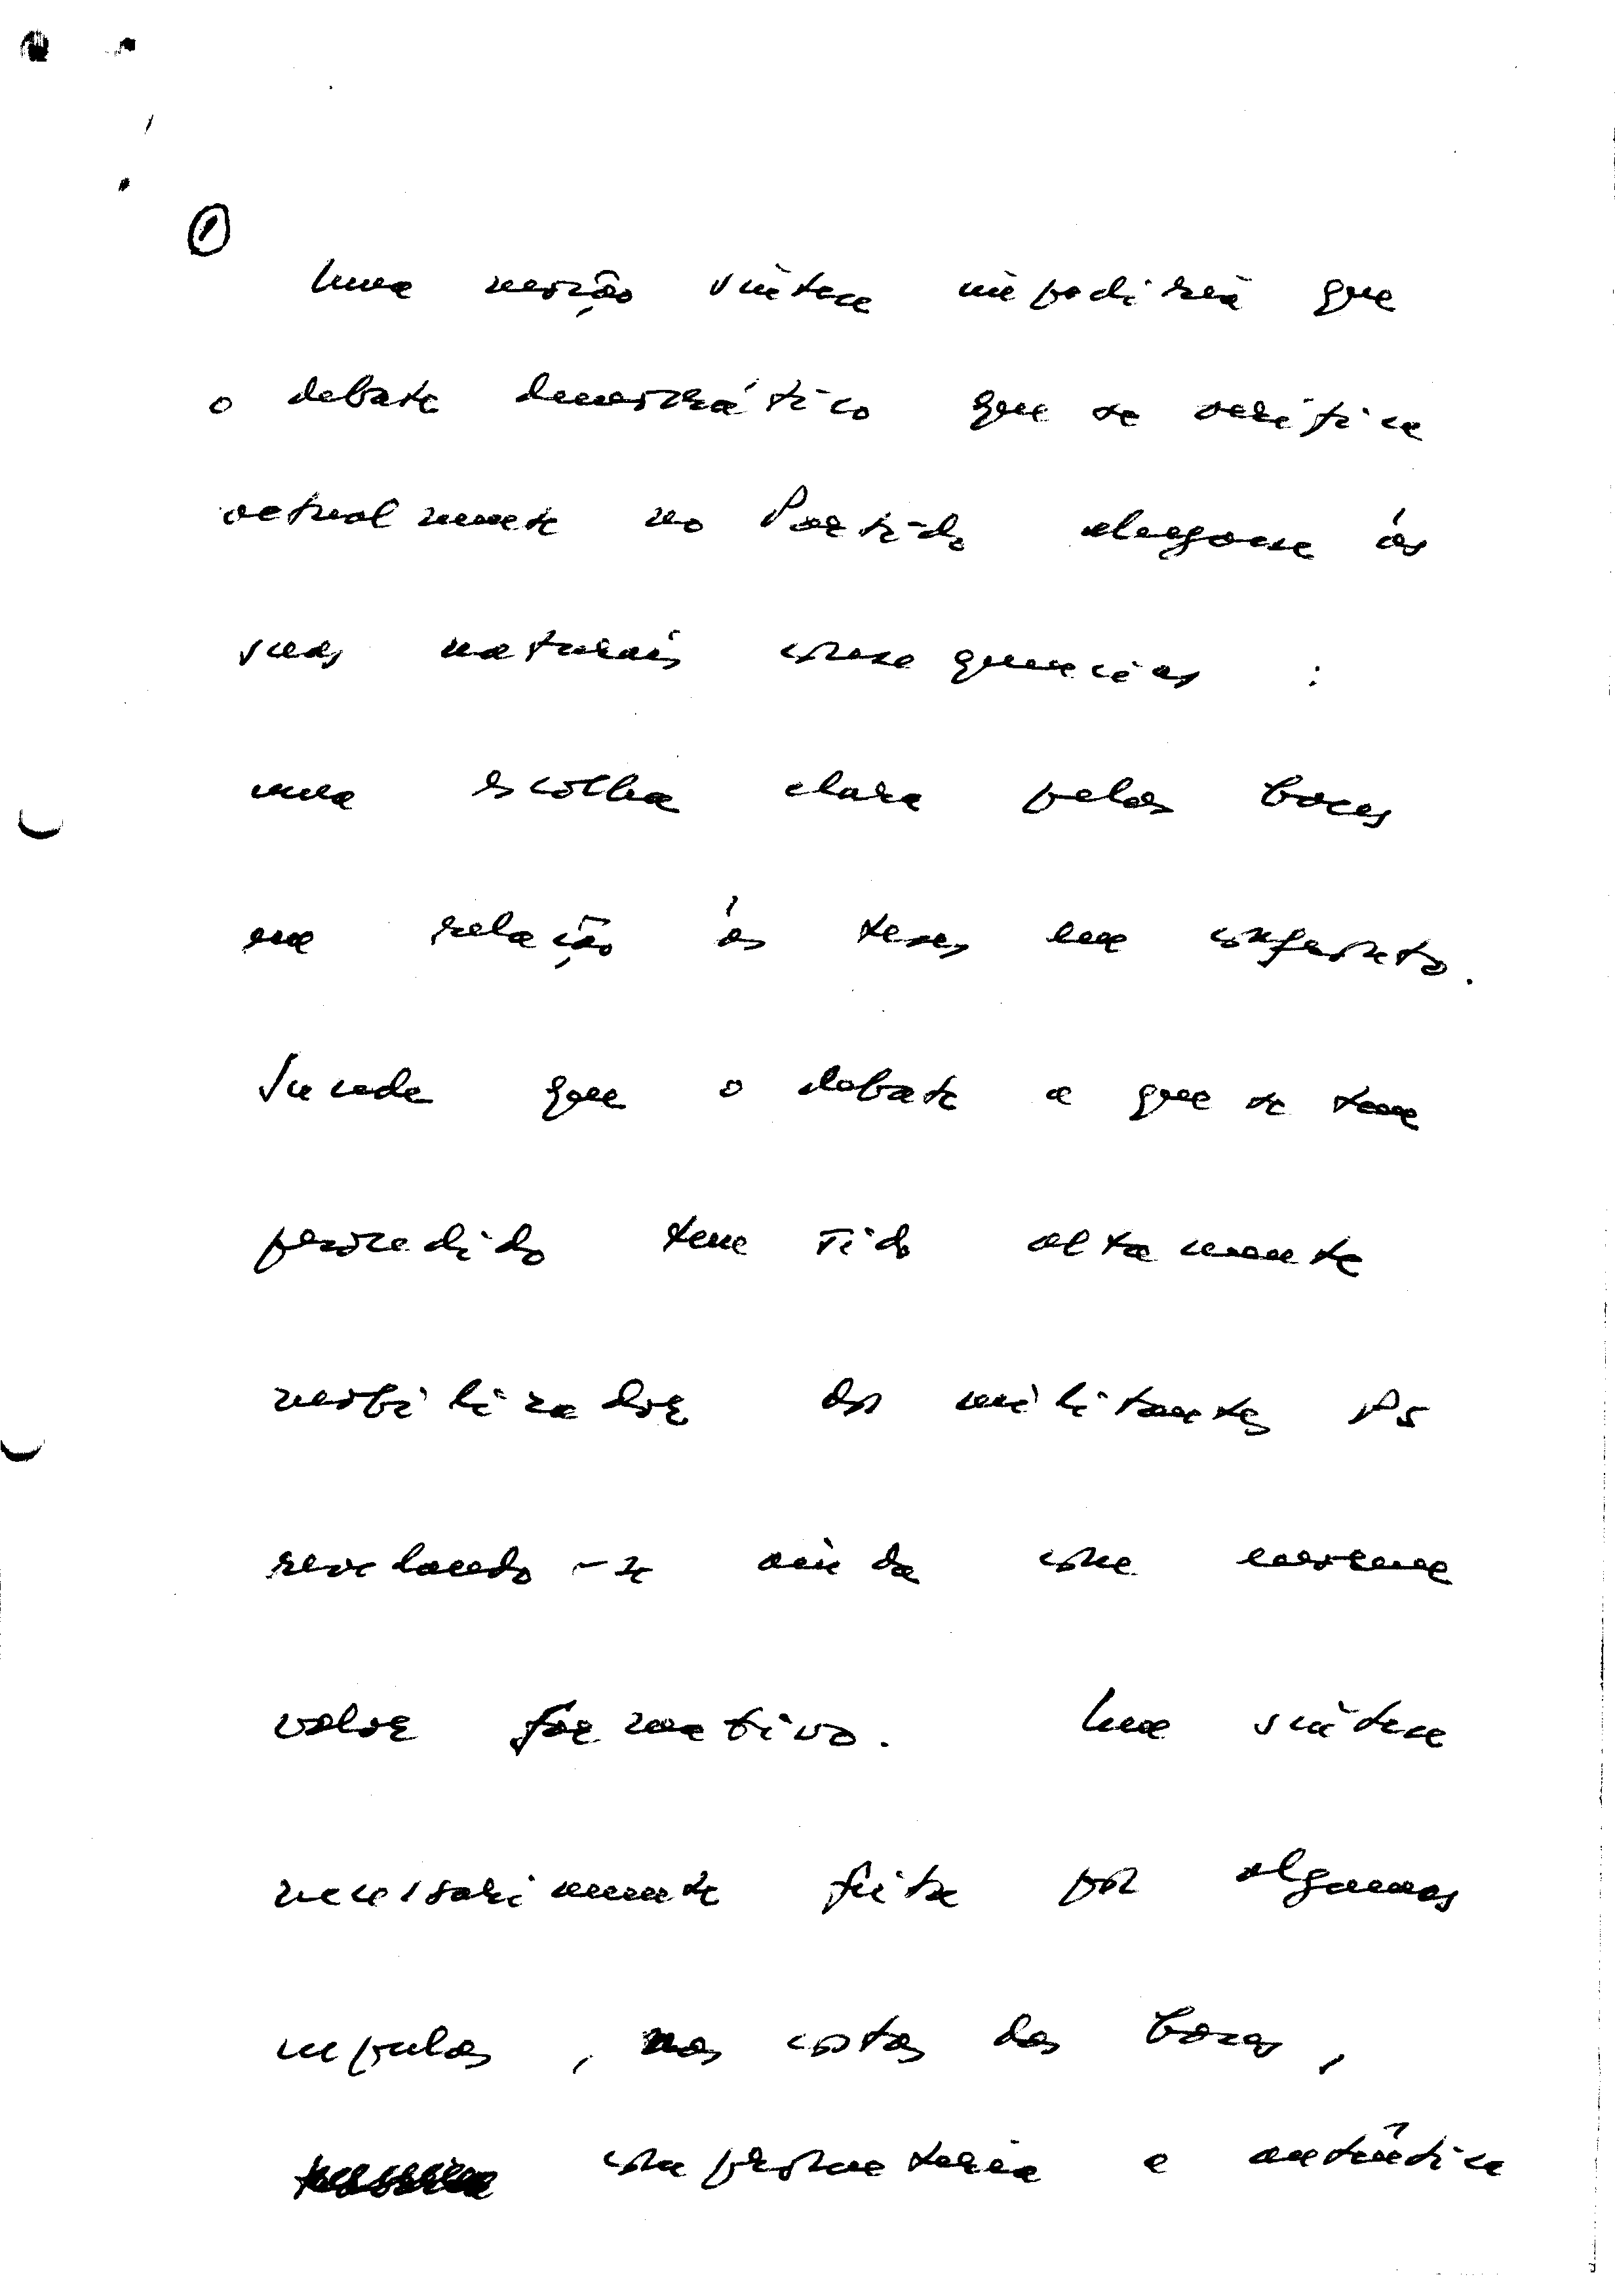 ①
Uma moção síntese impediria que
o debate democrático que se verifica
actualmente no Partido chegasse às
suas naturais consequencias :
uma escolha clara pelas bases
em relação às teses em confronto.
Sucede que o debate a que se tem
procedido tem sido altamente
mobilizador dos militantes PS
revelando-se ainda com enorme
valor formativo. Uma síntese
necessariamente feita por algumas
cupulas, nas costas das bases,
comprometeria a autêntica